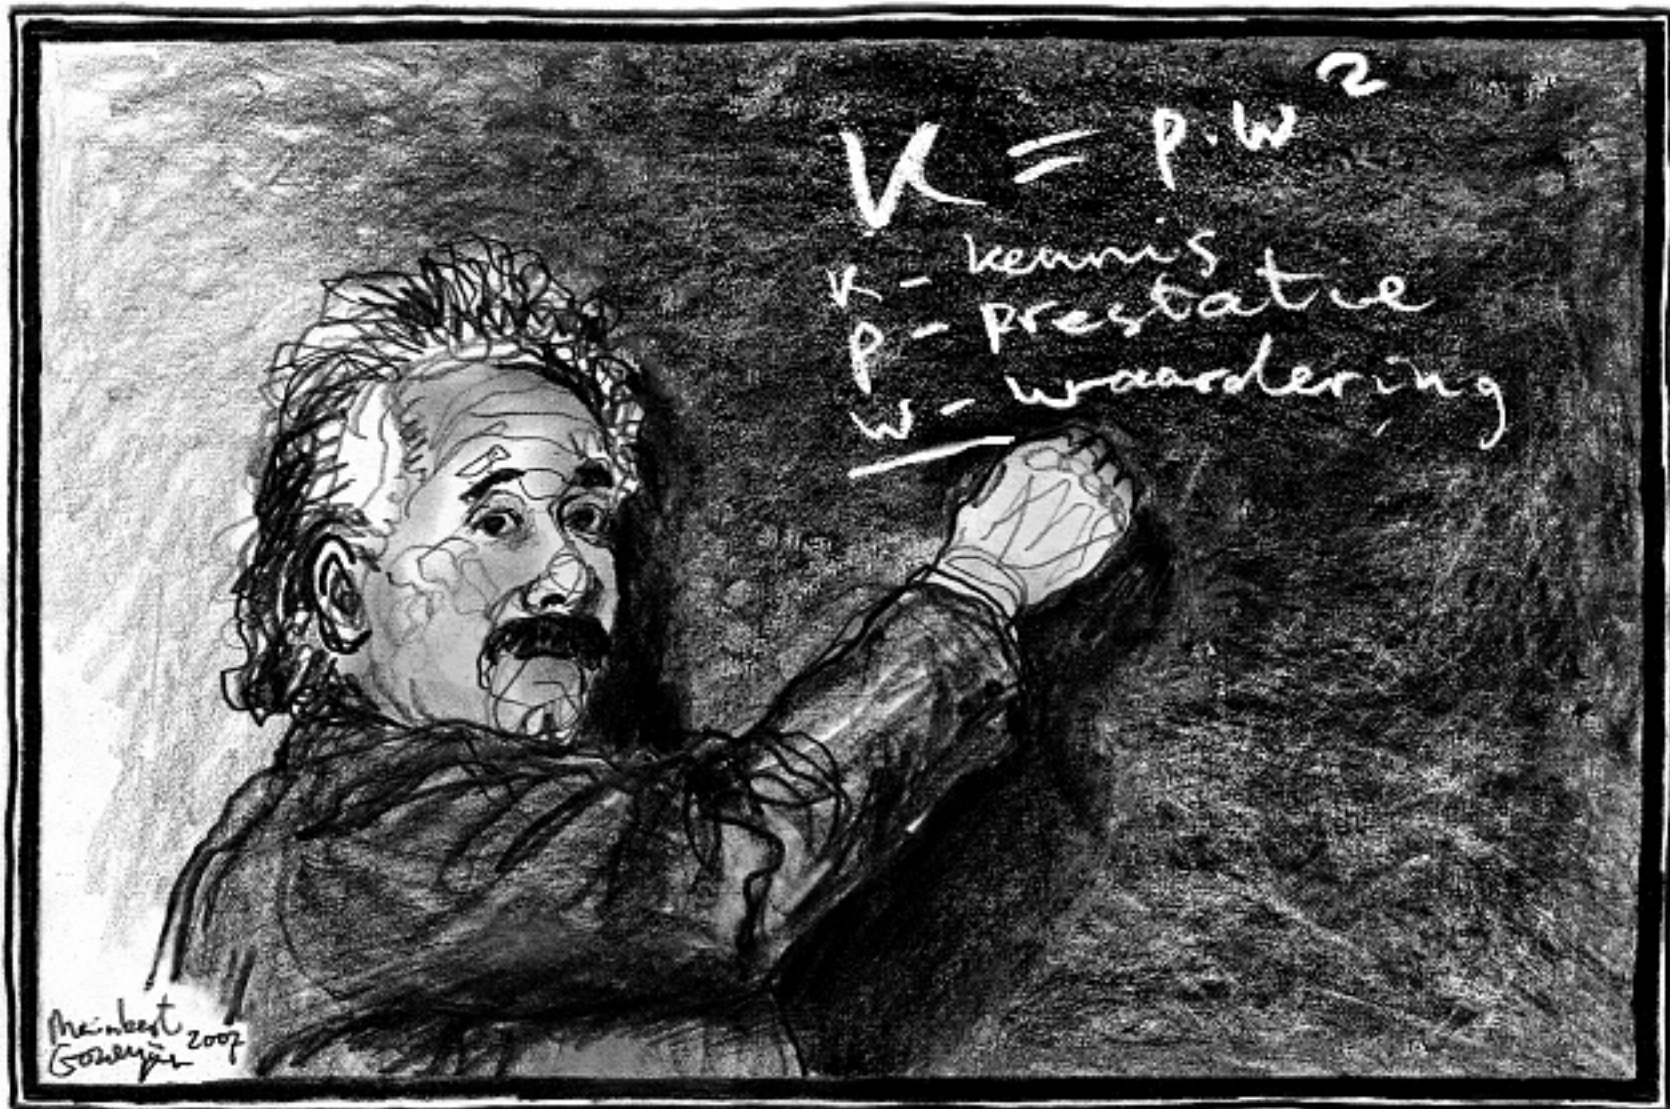 K = p.w²
K - kennis
p - prestatie
w - waardering
Meinbert
Gozewijn 2007